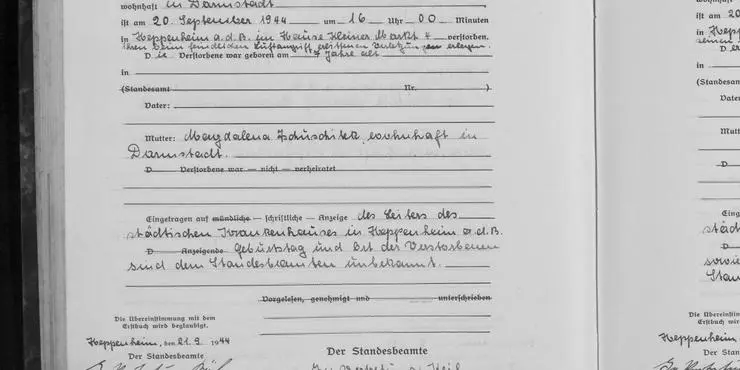 wohnhaft in Darmstadt
ist am 20. September 1944 um 16 Uhr 00 Minuten
in Heppenheim a.d.B. im Hause Kleiner Markt 4 verstorben.
ihren beim feindlichen Luftangriff erlittenen Verletzungen erlegen.
Die Verstorbene war geboren am 7 Jahre alt
in
(Standesamt Nr. )
Vater:
Mutter: Magdalena wohnhaft in
Darmstadt.
D Verstorbene war — nicht — verheiratet
Eingetragen auf mündliche — schriftliche — Anzeige des Leiters des
städtischen Krankenhauses in Heppenheim a.d.B.
D Anzeigende Geburtstag und Ort der Verstorbenen
sind dem Standesbeamten unbekannt.
Vorgelesen, genehmigt und unterschrieben
Die Übereinstimmung mit dem
Erstbuch wird beglaubigt.
Heppenheim, den 21. 9. 1944
Der Standesbeamte
Der Standesbeamte
ist am 20
in Hepp
in
(Standesa
Vater
Mutt
D
Eing
städt
sowie
Stan
Die Übereinstim
Erstbuch wird be
Heppenheim,
Der Stand